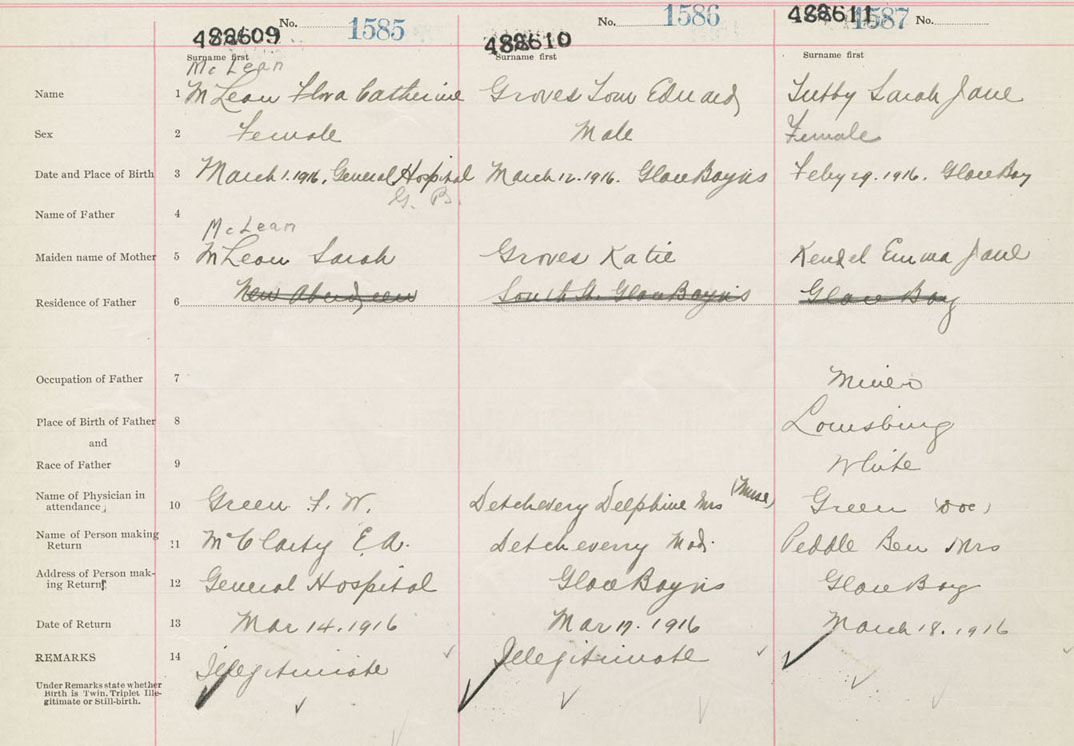 No. 1585 No. 1586 1587 No.
488609 488610 488611
Surname first Surname first Surname first
McLean
Name 1 McLean Flora Catherine Groves Tom Edward Tubby Sarah Jane
Sex 2 Female Male Female
Date and Place of Birth 3 March 1. 1916, General Hospital March 12. 1916. Glace Bay NS Feby 29. 1916. Glace Bay
G. B.
Name of Father 4
McLean
Maiden name of Mother 5 McLean Sarah Groves Katie Kendel Emma Jane
Residence of Father 6 New Aberdeen South St. Glace Bay NS Glace Bay
Occupation of Father 7 Miner
Place of Birth of Father 8 Louisburg
and
Race of Father 9 White
Name of Physician in
attendance, 10 Green F. W. Detcheverry Delphine Mrs (Nurse) Green (Doc)
Name of Person making
Return 11 McClarty E.A. Detcheverry Mad. Peddle Ben Mrs
Address of Person mak-
ing Return 12 General Hospital Glace Bay NS Glace Bay
Date of Return 13 Mar 14. 1916 Mar 17. 1916 March 18. 1916
REMARKS 14 Illegitimate Illegitimate
Under Remarks state whether
Birth is Twin, Triplet Ille-
gitimate or Still-birth.